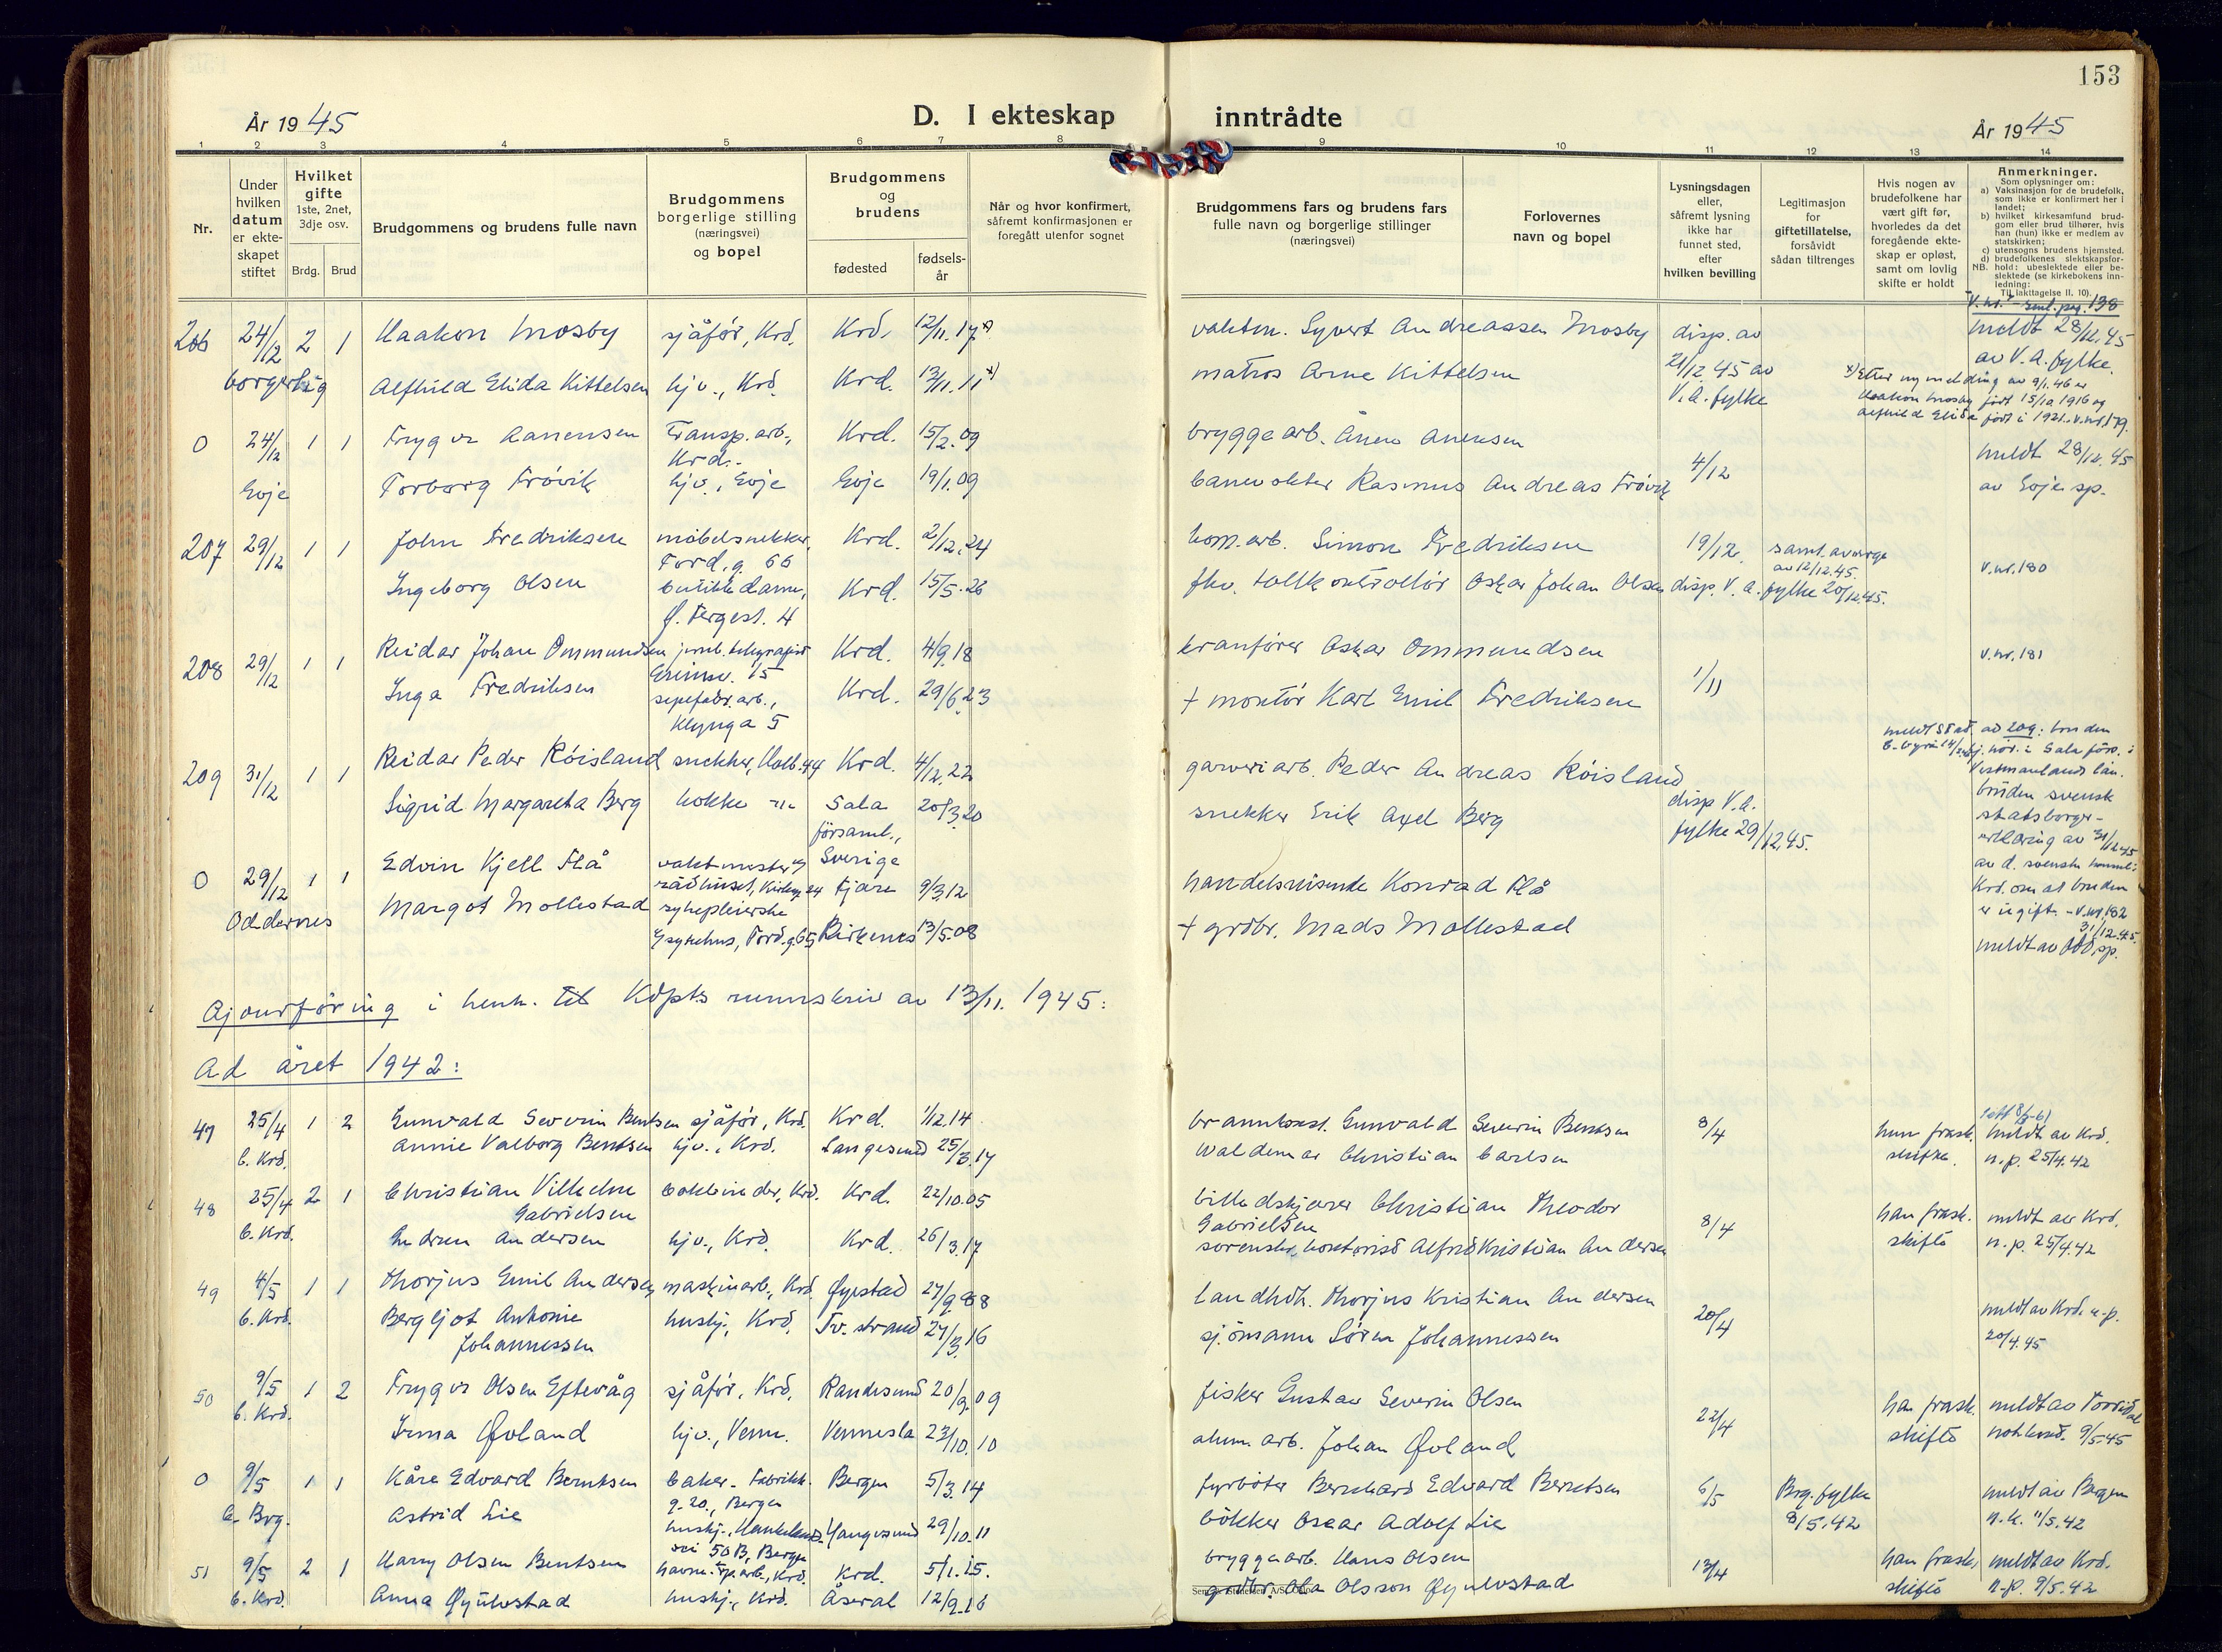 153
År 1945
D. I ekteskap inntrådte
År 1945
1 2 3 4 5 6 7 8 9 10 11 12 13 14
Nr.
Under hvilken datum er ekteskapet stiftet
Hvilket gifte
1ste, 2net, 3dje osv.
Brdg. Brud
Brudgommens og brudens fulle navn
Brudgommens borgerlige stilling (næringsvei) og bopel
Brudgommens og brudens
fødested
fødselsår
Når og hvor konfirmert, såfremt konfirmasjonen er foregått utenfor sognet
Brudgommens fars og brudens fars fulle navn og borgerlige stillinger (næringsvei)
Forlovernes navn og bopel
Lysningsdagen eller, såfremt lysning ikke har funnet sted, efter hvilken bevilling
Legitimasjon for giftetillatelse, forsåvidt sådan tiltrenges
Hvis nogen av brudefolkene har vært gift før, hvorledes da det foregående ekteskap er opløst, samt om lovlig skifte er holdt
Anmerkninger.
Som oplysninger om:
a) Vaksinasjon for de brudefolk, som ikke er konfirmert her i landet;
b) hvilket kirkesamfund brudgom eller brud tilhører, hvis han (hun) ikke er medlem av statskirken;
c) utensogns brudens hjemsted.
d) brudefolkenes slektskapsforhold: ubeslektede eller beslektede (se kirkebokens innledning:
NB. Til iakttagelse II, 10).
206 24/12 2 1 Haakon Mosby sjåfør, Krd. Krd. 12/11.17 x) vaktm. Syvert Andreassen Mosby disp. av meldt 28/12.45
borgerlig Alfhild Elida Kittelsen hjv., Krd. Krd. 13/11.11 x) matros Arne Kittelsen 21/12.45 av V.A. fylke av V.A. fylke.
x) Etter ny melding av 9/1.46 er Haakon Mosby født 15/12 1916 og Alfhild Elida født i 1921. v.nr. 179.
0 24/12 1 1 Trygve Aanensen Transp.arb., Krd. Krd. 15/2.09 bryggearb. Ånen Anensen 4/12 meldt 28/12.45
Evje Torborg Frøvik hjv., Evje Evje 19/1.09 banevokter Rasmus Andreas Frøvik av Evje sp.
207 29/12 1 1 John Fredriksen møbelsnekker, Tord.g. 66 Krd. 2/12.24 kom.arb. Simon Fredriksen 19/12. samt. av verge av 12/12.45. v.nr. 180
Ingeborg Olsen butikkdame, Ø. Fergest. 4 Krd. 15/5.26 fhv. tollkontrollør Oskar Johan Olsen disp. V.A. fylke 20/12.45.
208 29/12 1 1 Reidar Johan Ommundsen jernb.telegrafist Krd. 4/9.18 kranfører Oskar Ommundsen 1/11 v.nr. 181
Inga Fredriksen sepefabr.arb., Klynga 5 Krd. 29/6.23 + montør Karl Emil Fredriksen
209 31/12 1 1 Reidar Peder Røisland snekker, Holb.44 Krd. 4/12.22 garveriarb. Peder Andreas Røisland disp V.A.
Sigrid Margareta Berg kokke Sala församl., Sverige 20/3.20 snekker Erik Axel Berg fylke 29/12.45.
ad 209: bruden hj.hør. i Sala förs. i Vestmanlands län.
bruden svensk
statsborger-
erklæring av 31/12.45
av d. svenske konsul i
Krd. om at bruden
er ugift. - v.nr. 182
0 29/12 1 1 Edvin Kjell Flå vaktmester v/ rådhuset, Kirkeg. 24 Fjære 9/3.12 handelsreisende Konrad Flå 31/12.45.
Oddernes Margot Mollestad sykepleierske v/ sykehus, Tord.g. 65 Birkenes 13/5.08 + grdbr. Mads Mollestad meldt av Odd. sp.
Ajourføring i henh. til Kdpts rundskriv av 13/11. 1945:
Ad året 1942:
47 25/4 1 2 Gunvald Severin Bentsen sjåfør, Krd. Krd. 1/12.14 brannkonst. Gunvald Severin Bentsen 8/4 hun frask. meldt av Krd.
b. Krd. Annie Valborg Bentsen hjv., Krd. Langesund 25/3.17 Waldemar Christian Carlsen skifte n.p. 25/4.42
48 25/4 2 1 Christian Vilhelm Gabrielsen bokbinder, Krd. Krd. 22/10.05 billedskjærer Christian Theodor Gabrielsen 8/4 han frask. meldt av Krd.
b. Krd. Andersen hjv., Krd. Krd. 26/3.17 sorenskr.kontorist Alfred Kristian Andersen skifte n.p. 25/4.42
49 4/5 1 1 Thorjus Emil Andersen maskinarb., Krd. Øyestad 27/9. 88 landhdl. Thorjus Kristian Andersen 20/4 meldt av Krd. n.p.
b. Krd. Bergljot Antonie Johannessen hushj., Krd. Tv.strand 27/3.16 sjømann Søren Johannessen 20/4.45
50 9/5 1 2 Trygve Olsen Eftevåg sjåfør, Krd. Randesund 20/9.09 fisker Gustav Severin Olsen 22/4 han frask. meldt av Torridal
b. Krd. Irma Øvland hjv., Venn. Vennesla 23/10.10 alum.arb. Johan Øvland skifte 9/5.45
0 9/5 1 1 Kåre Edvard Berntsen baker, Fabrikk-g. 20, Bergen Bergen 5/3.14 fyrbøter Bernhard Edvard Berntsen 6/5 Brg. fylke meldt av Bergen
b. Brg. Astrid Lie hushj., 50B, Bergen 29/10.11 bøkker Oscar Adolf Lie 8/5.42 11/5.42
51 9/5 2 1 Harry Olsen Bentsen havne-tp.arb., Krd. Krd. 5/1.15. bryggearb. Hans Olsen 13/4 han frask. meldt av Krd.
b. Krd. Anna hushj., Krd. Åseral 12/9.16 grdbr. Ola Olsson skifte n.p. 9/5.42